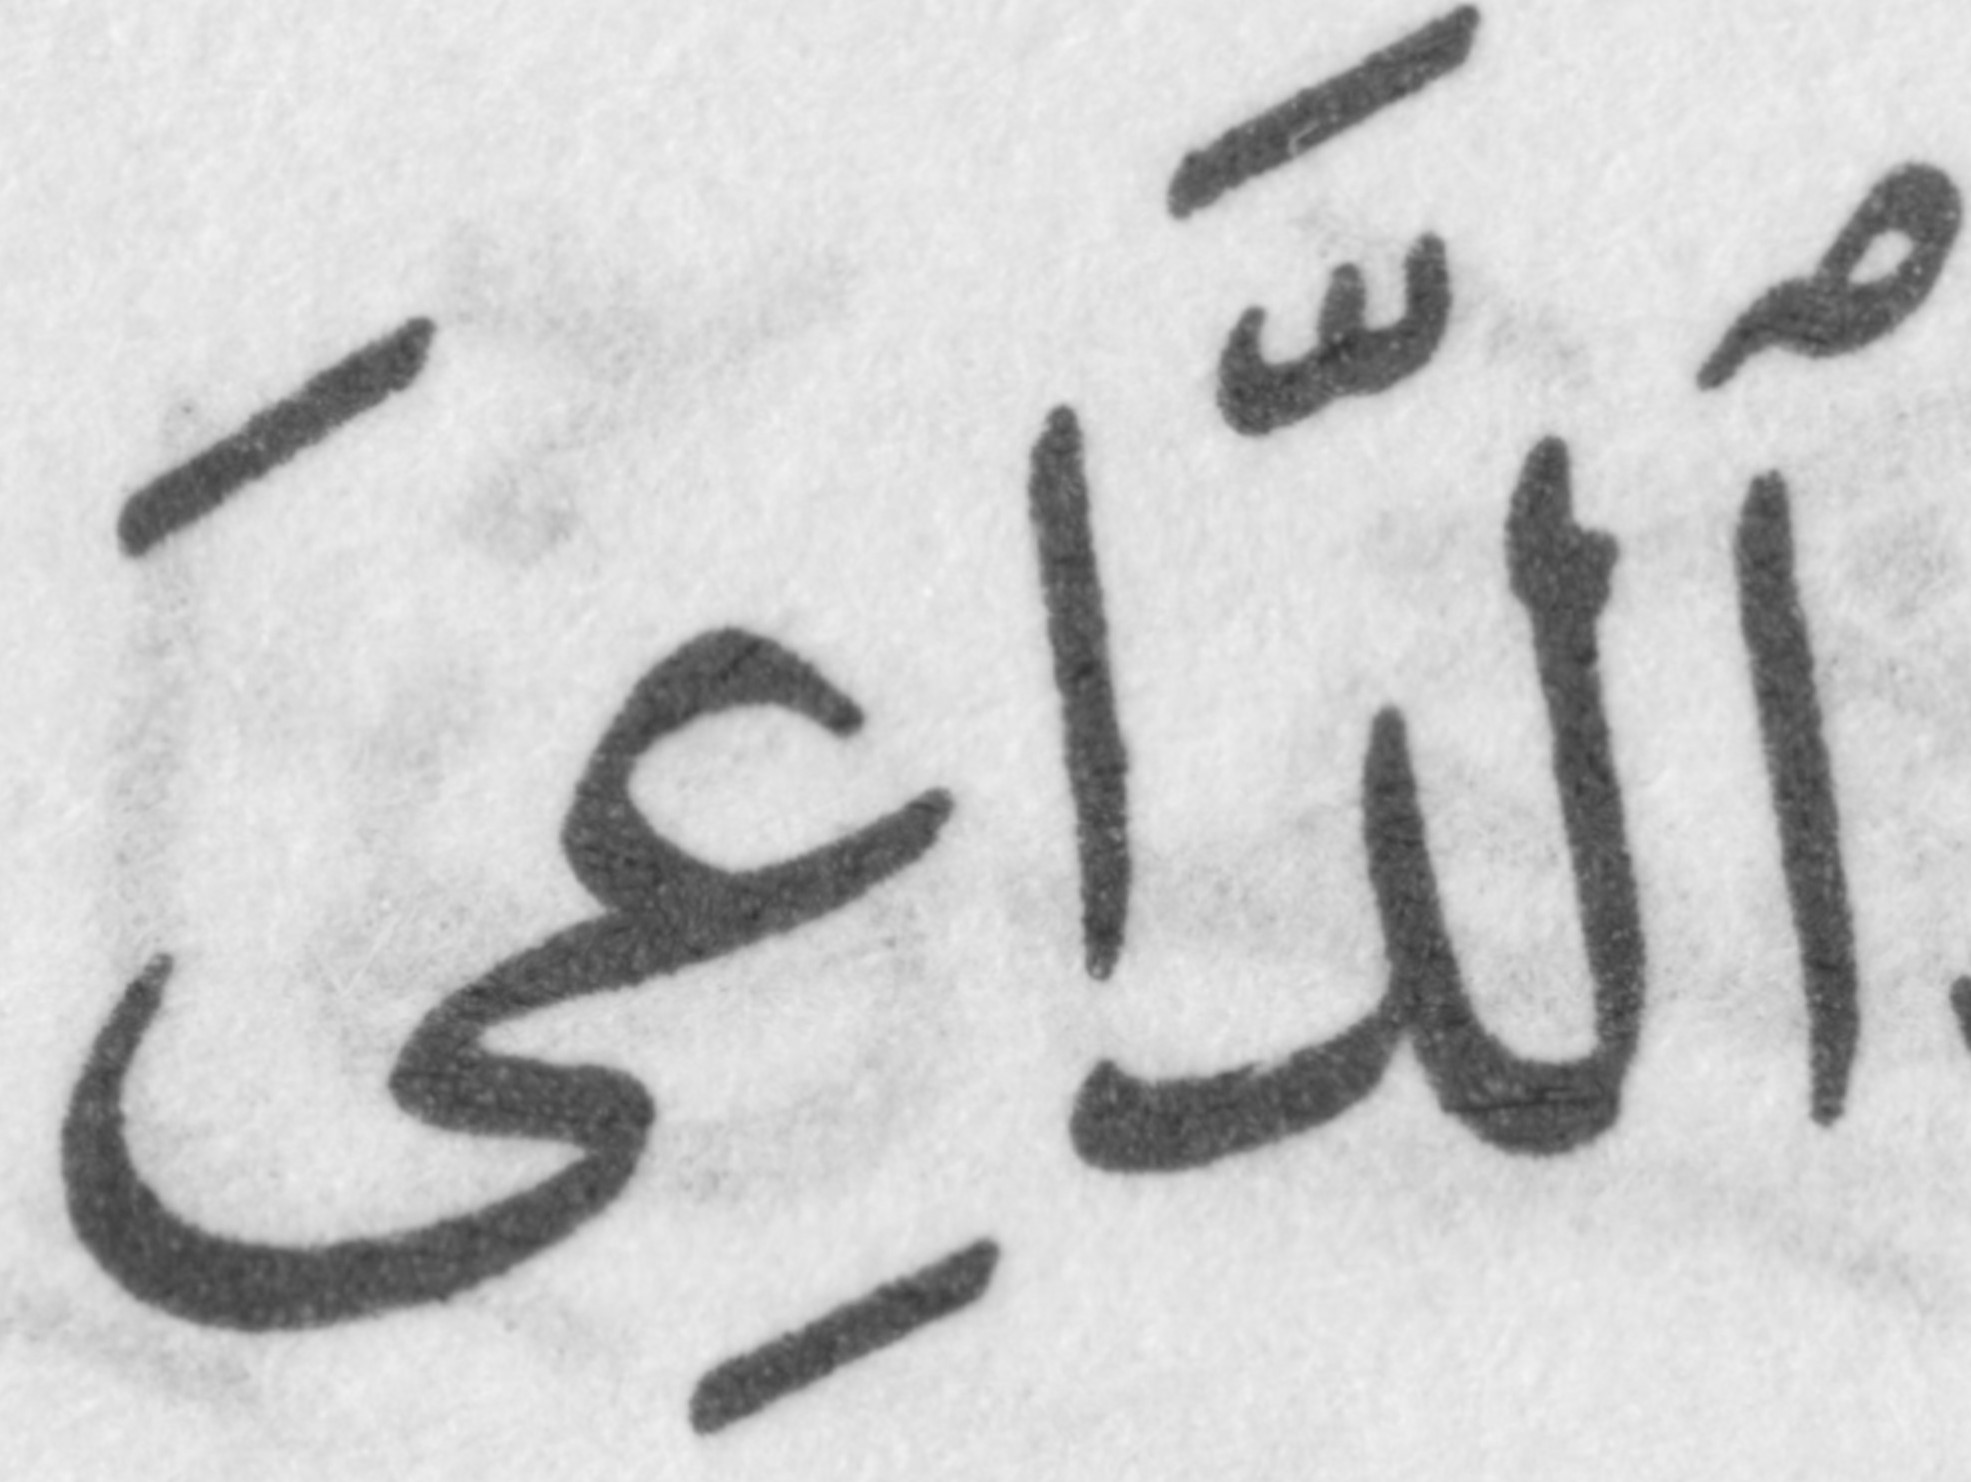 ٱلدَّاعِىَ